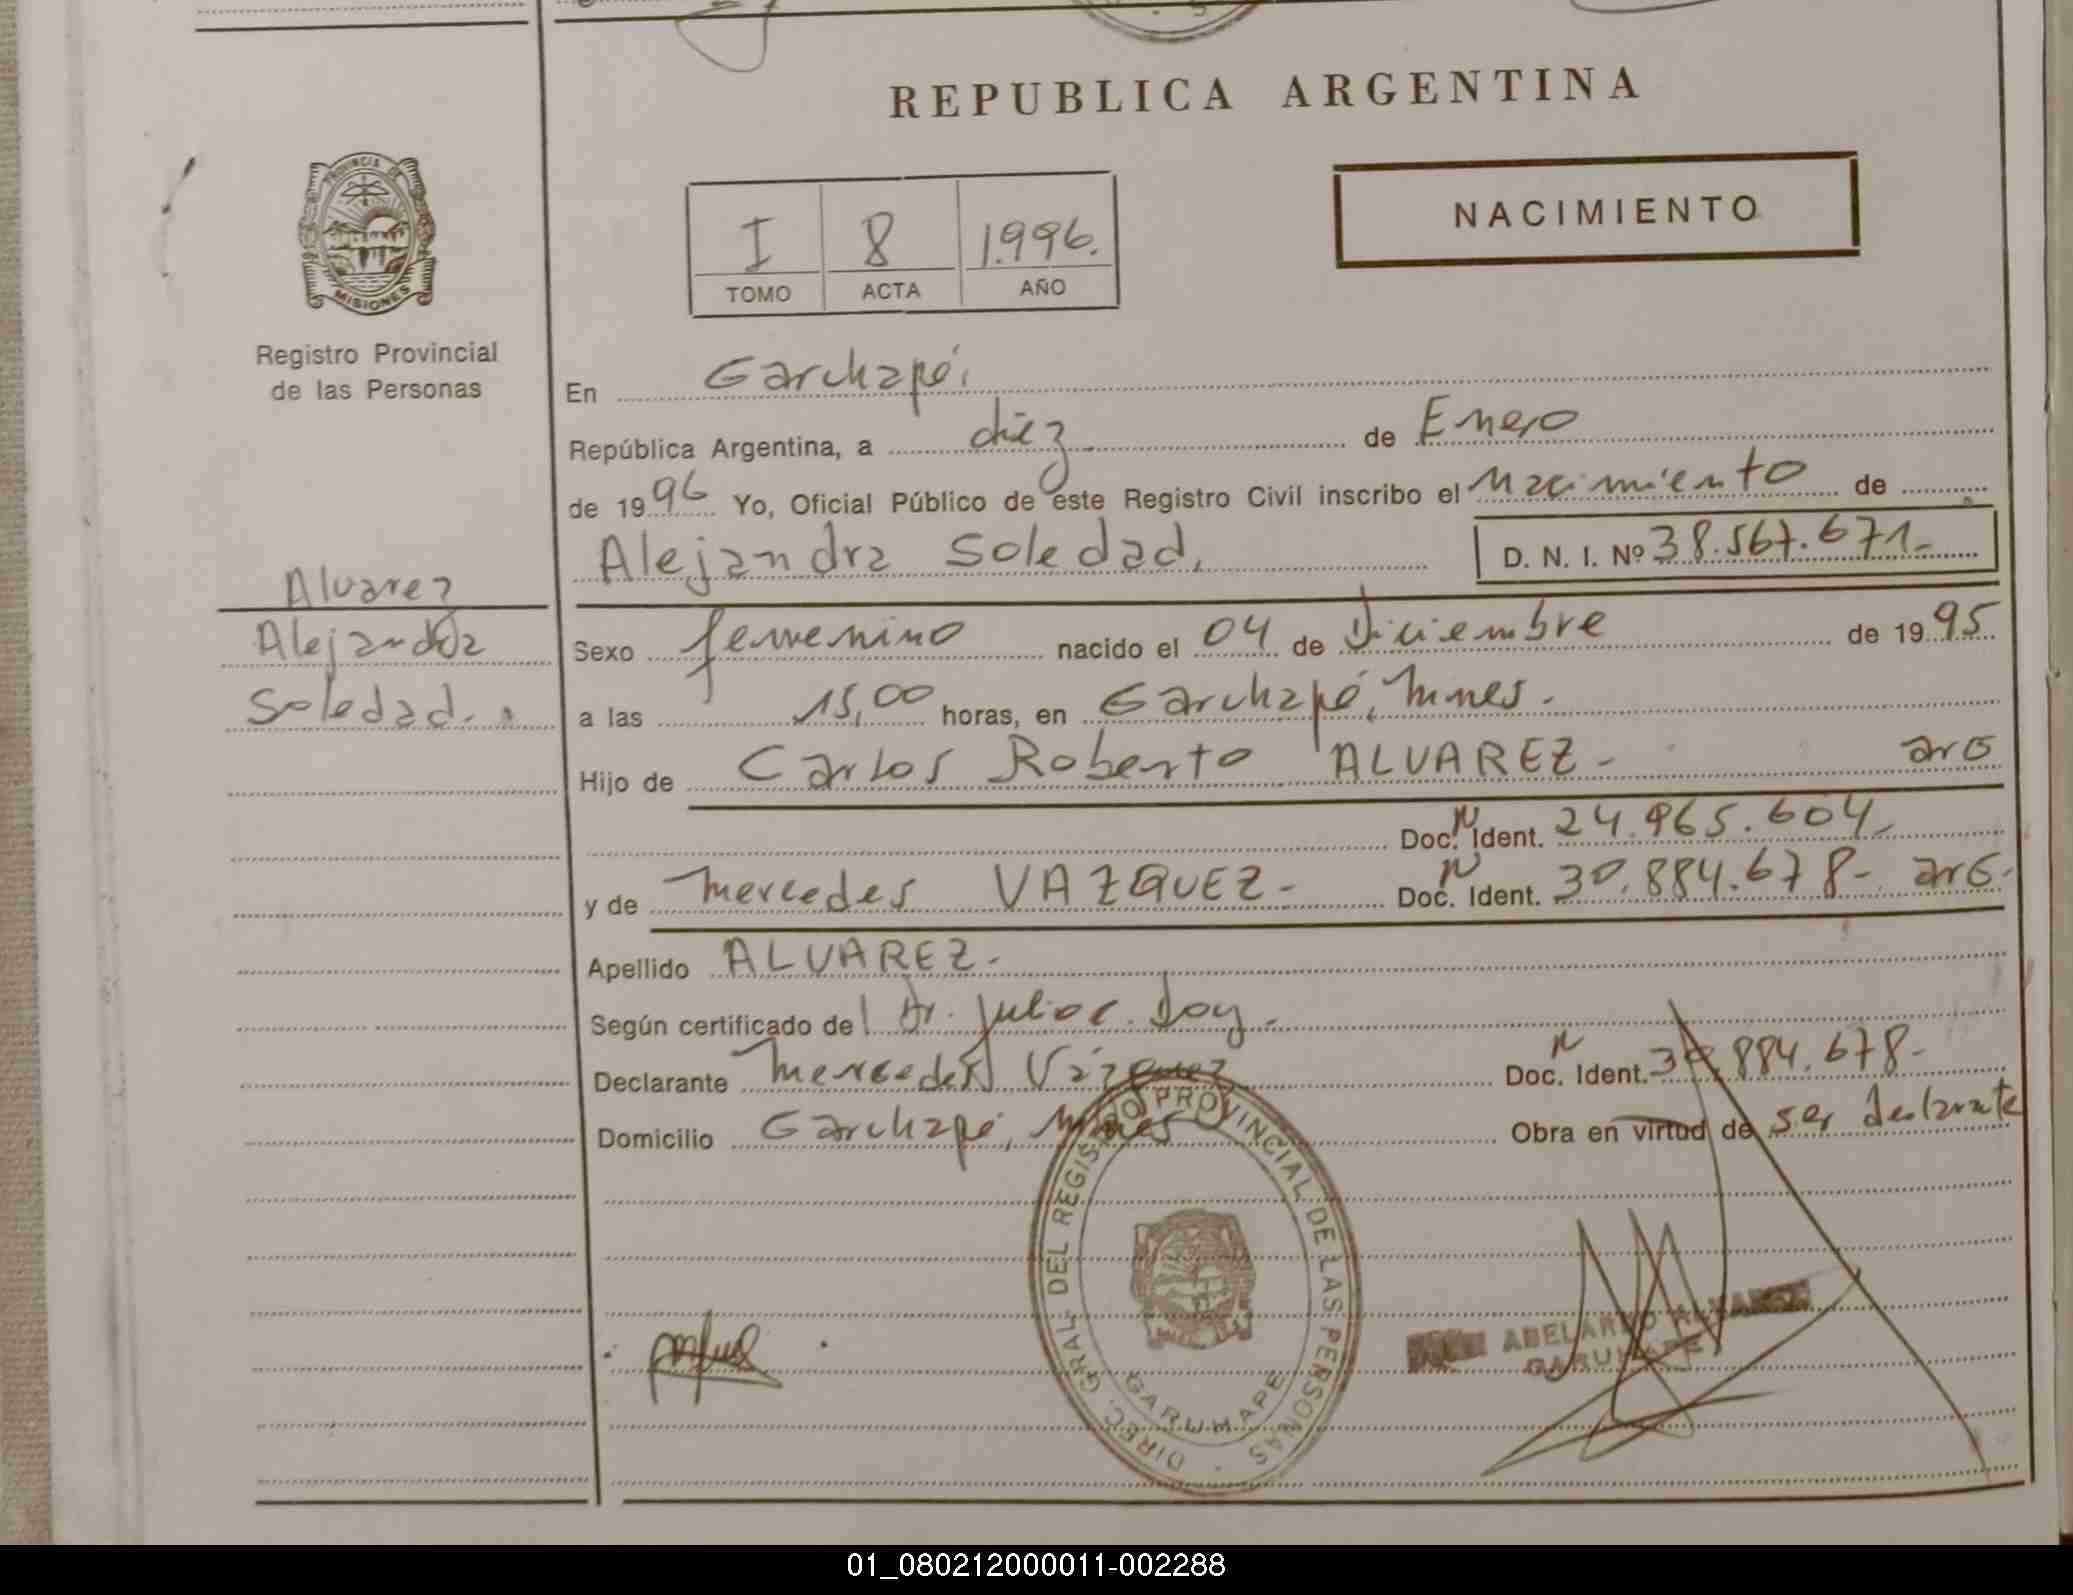 REPUBLICA ARGENTINA
PROVINCIA DE
MISIONES
Registro Provincial
de las Personas
I 8 1.996.
TOMO ACTA AÑO
NACIMIENTO
En Garuhapé.
República Argentina, a diez de Enero
de 1996 Yo, Oficial Público de este Registro Civil inscribo el Nacimiento de
Alejandra Soledad. D. N. I. Nº 38.567.671.-
Alvarez
Alejandra
Soledad.
Sexo femenino nacido el 04 de Diciembre de 1995
a las 15,00 horas, en Garuhapé, Mnes.
Hijo de Carlos Roberto ALVAREZ - arG
Doc. N Ident. 24.965.604.-
y de Mercedes VAZQUEZ - Doc. N Ident. 30.884.678- arG.
Apellido ALVAREZ.-
Según certificado de Dr. Julio C. Doy.
Declarante Mercedes Vázquez Doc. N Ident. 30.884.678-
Domicilio Garuhapé, Mnes Obra en virtud de ser declarante
DIREC. GRAL. DEL REGISTRO PROVINCIAL DE LAS PERSONAS
GARUHAPE
ABELARDO ALVAREZ
GARUHAPE
01_080212000011-002288